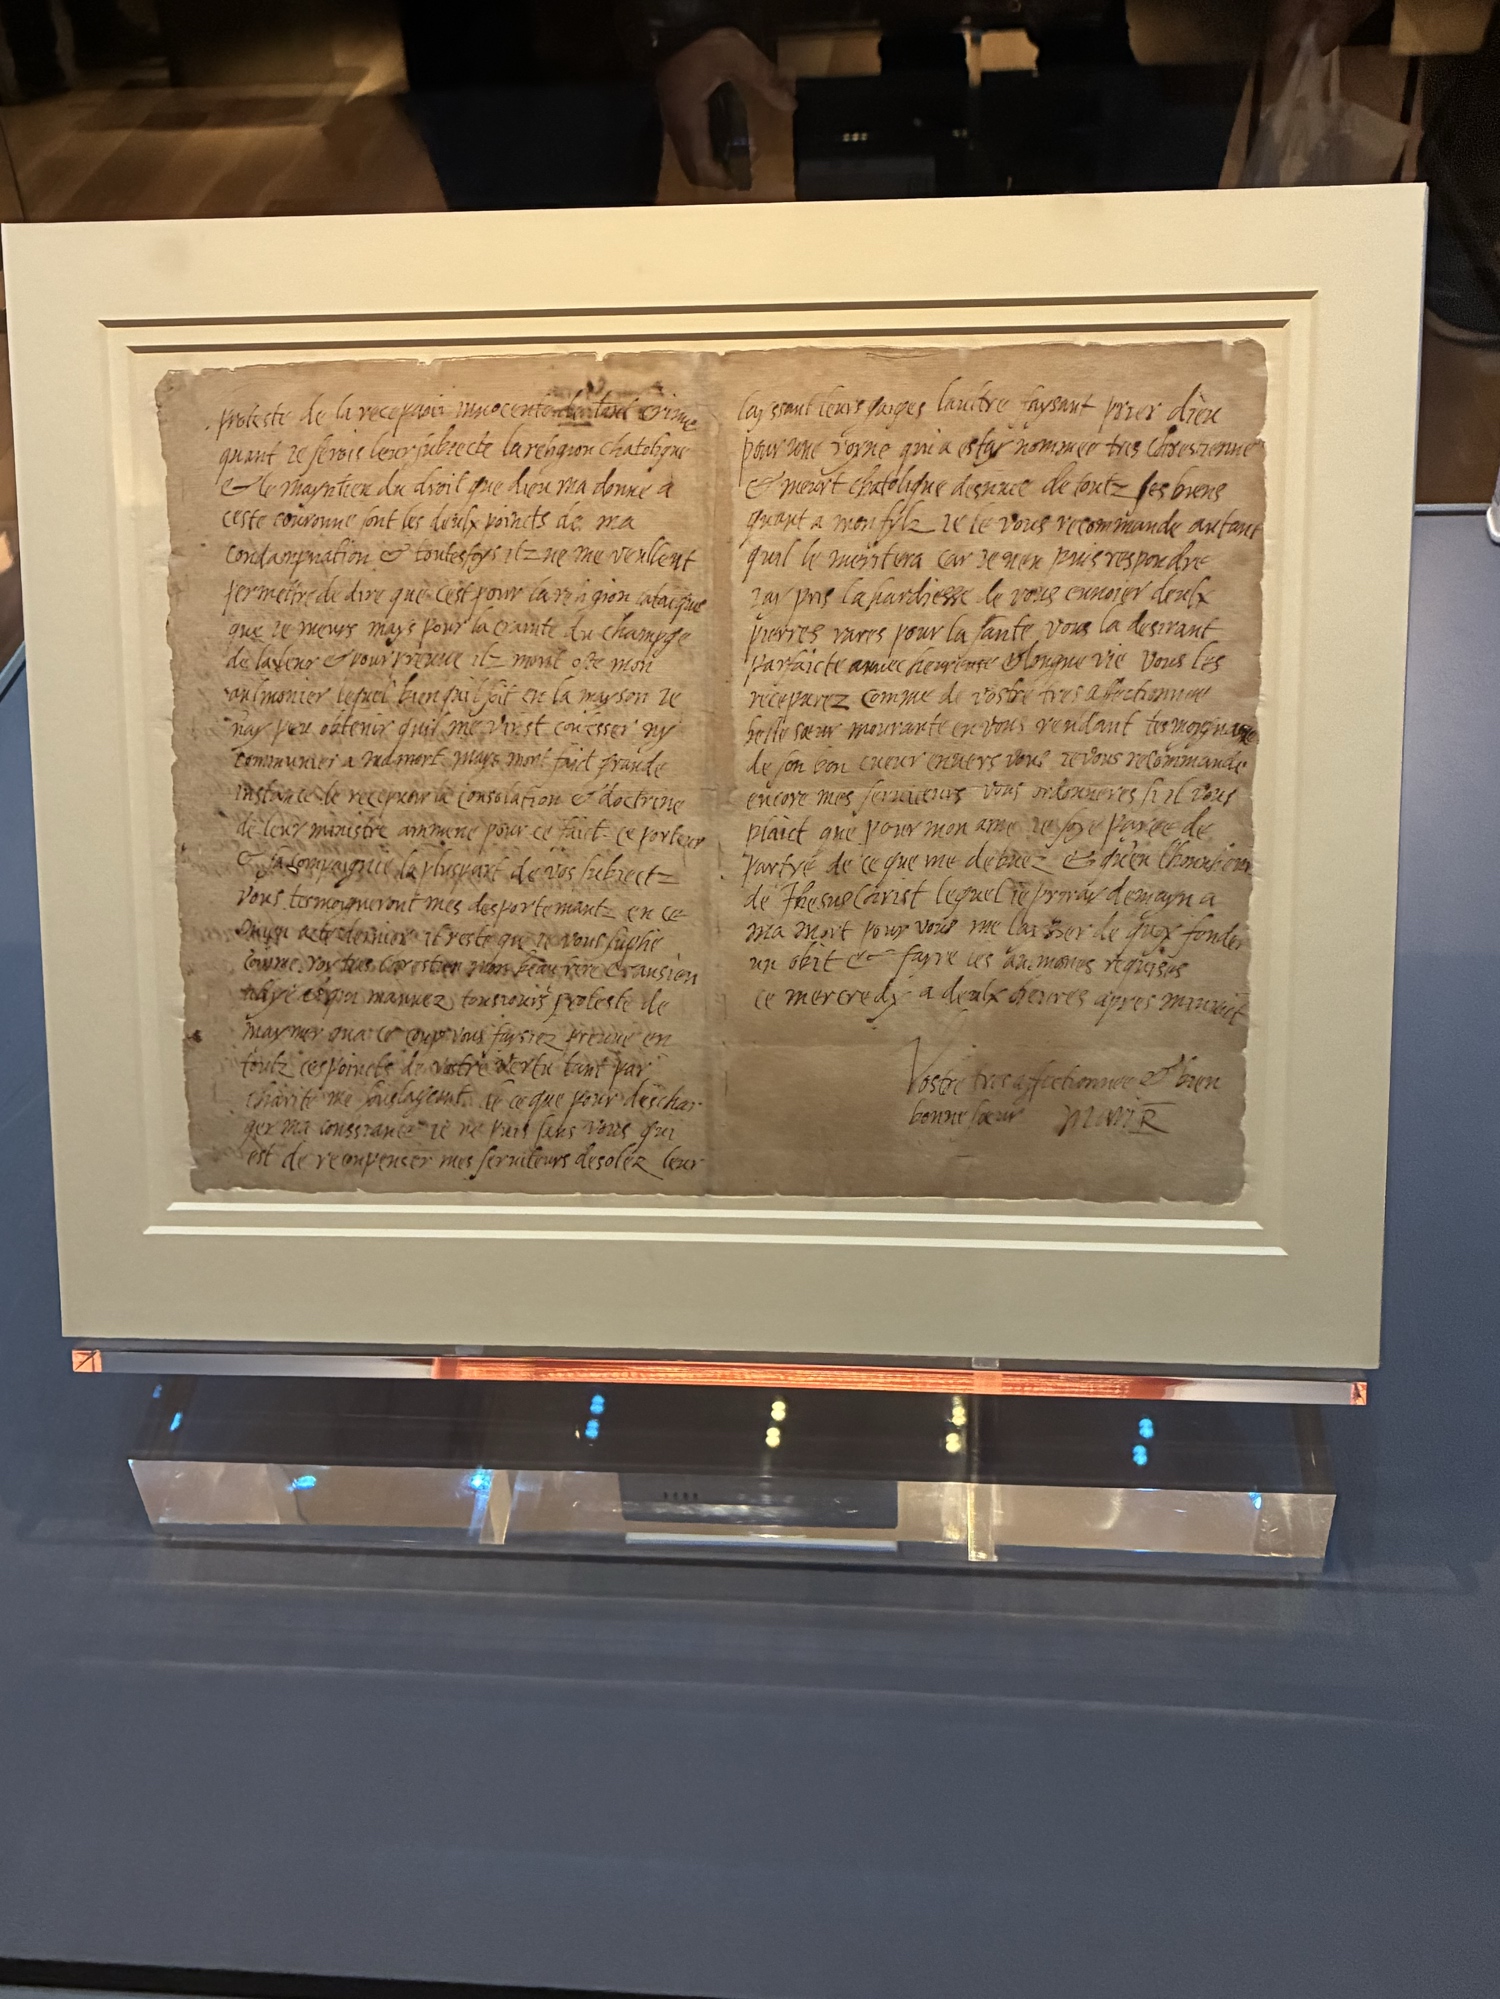 proteste de la recepvoir innocente de tout crime
quant je serois leur subjecte la religion chatolique
& le mayntien du droit que dieu ma donné a
ceste couronne sont les deulx poincts de ma
condampnation & toutesfoys ilz ne me veullent
permettre de dire que cest pour la religion catolique
que je meurs mays pour la crainte du champge
de la leur & pour preuve ilz mont osté mon
aulmonier lequel bien quil soit en la mayson je
nay peu obtenir quil me vinst confesser ny
communier a ma mort mays mont faict grande
instance de recepvoir la consolation & doctrine
de leur ministre ammené pour ce faict ce porteur
& sa compaignie la pluspart de vos subjectz
vous tesmoigneront mes desportemantz en ce
mien acte dernier il reste que je vous suplie
comme roy tres chrestien mon beau frere & ansien
allyé & qui mauvez tousjours protesté de
maymer qua ce coup vous faysiez preuve en
toutz ces poincts de vostre vertu tant par
charité me soulageant de ce que pour deschar
ger ma conssiance je ne puis sans vous qui
est de recompenser mes serviteurs desolez leur
layssant leurs gaiges laultre faysant prier dieu
pour une royne qui a estay nommée tres chrestienne
& meurt chatolique desnuée de toutz ses biens
quant a mon fylz je le vous recommande autant
quil le meritera car je nen puis respondre
Jay pris la hardiesse de vous envoier deulx
pierres rares pour la santé vous la desirant
parfaicte avvec heureuse & longue vie Vous les
recepvrez comme de vostre tres affectionnee
belle sœur mourante en vous rendant tesmoygnage
de son bon cueur envers vous je vous recommande
encore mes serviteurs vous ordonneres si il vous
plaict que pour mon ame je soye payee de
partye de ce que me debvez & quen l'honneur
de Jhesus Christ lequel je priray demayn a
ma mort pour vous me laisser de quoy fonder
un obit & fayre les aumones requises
ce mercredy a deulx heures apres minuit
Vostre tres affectionnee & bien
bonne sœur Mari R